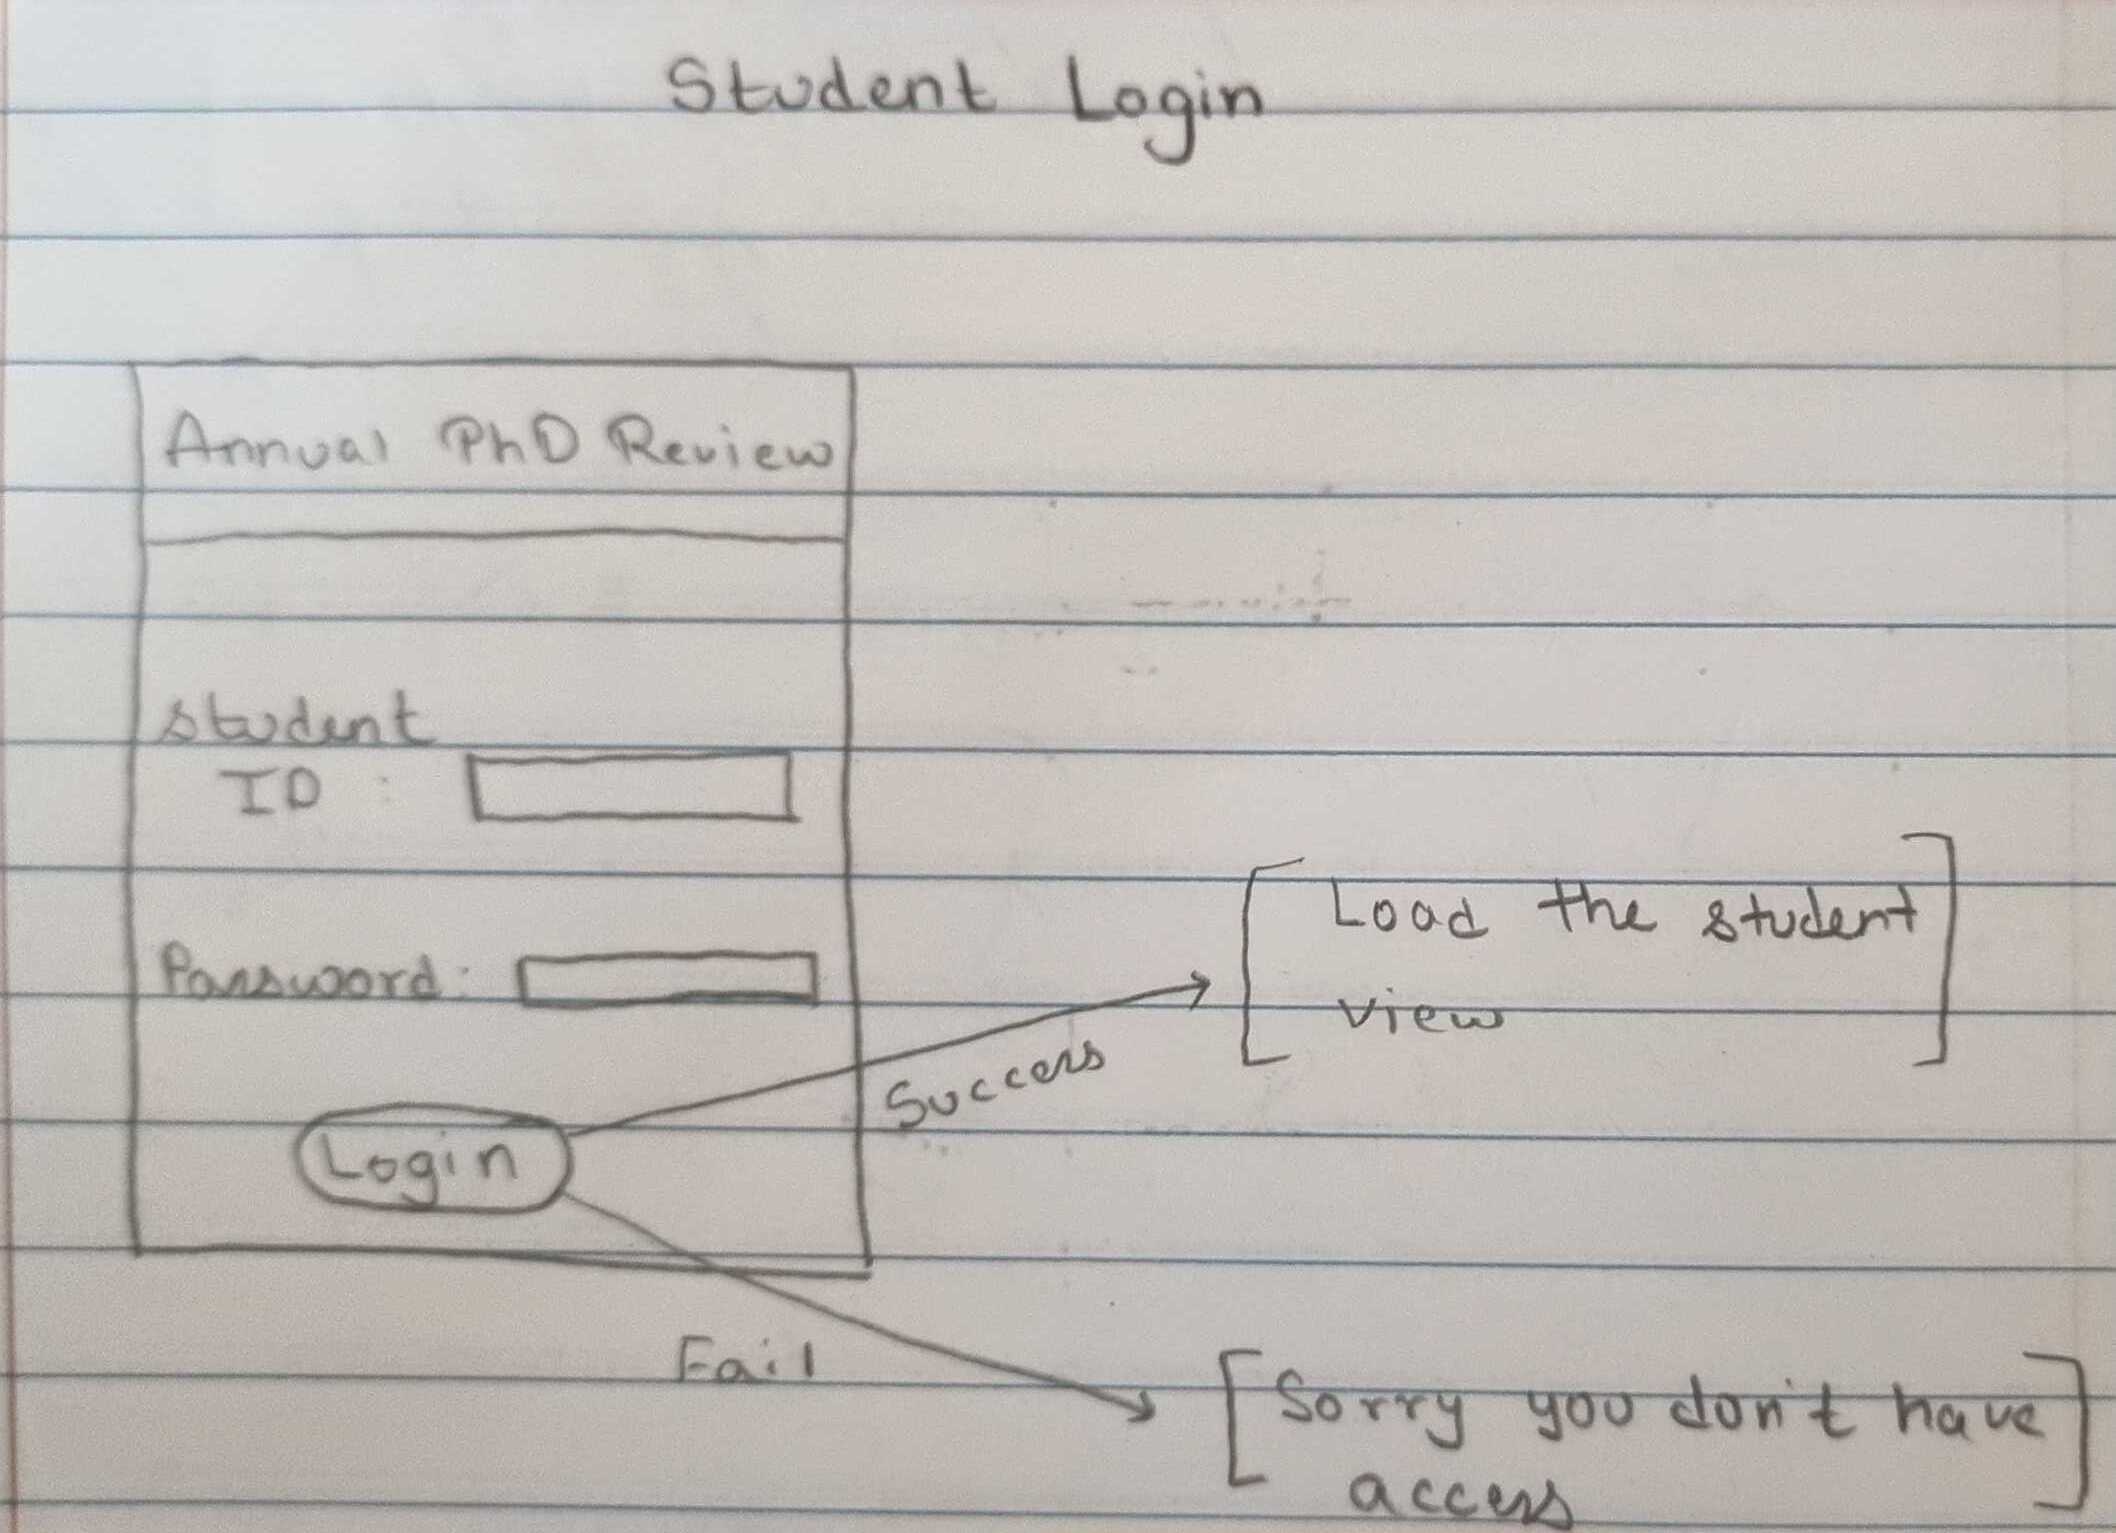 Student Login
Annual PhD Review
Student
ID :
Password :
Login
Success
Load the student
view
Fail
Sorry you don't have
access